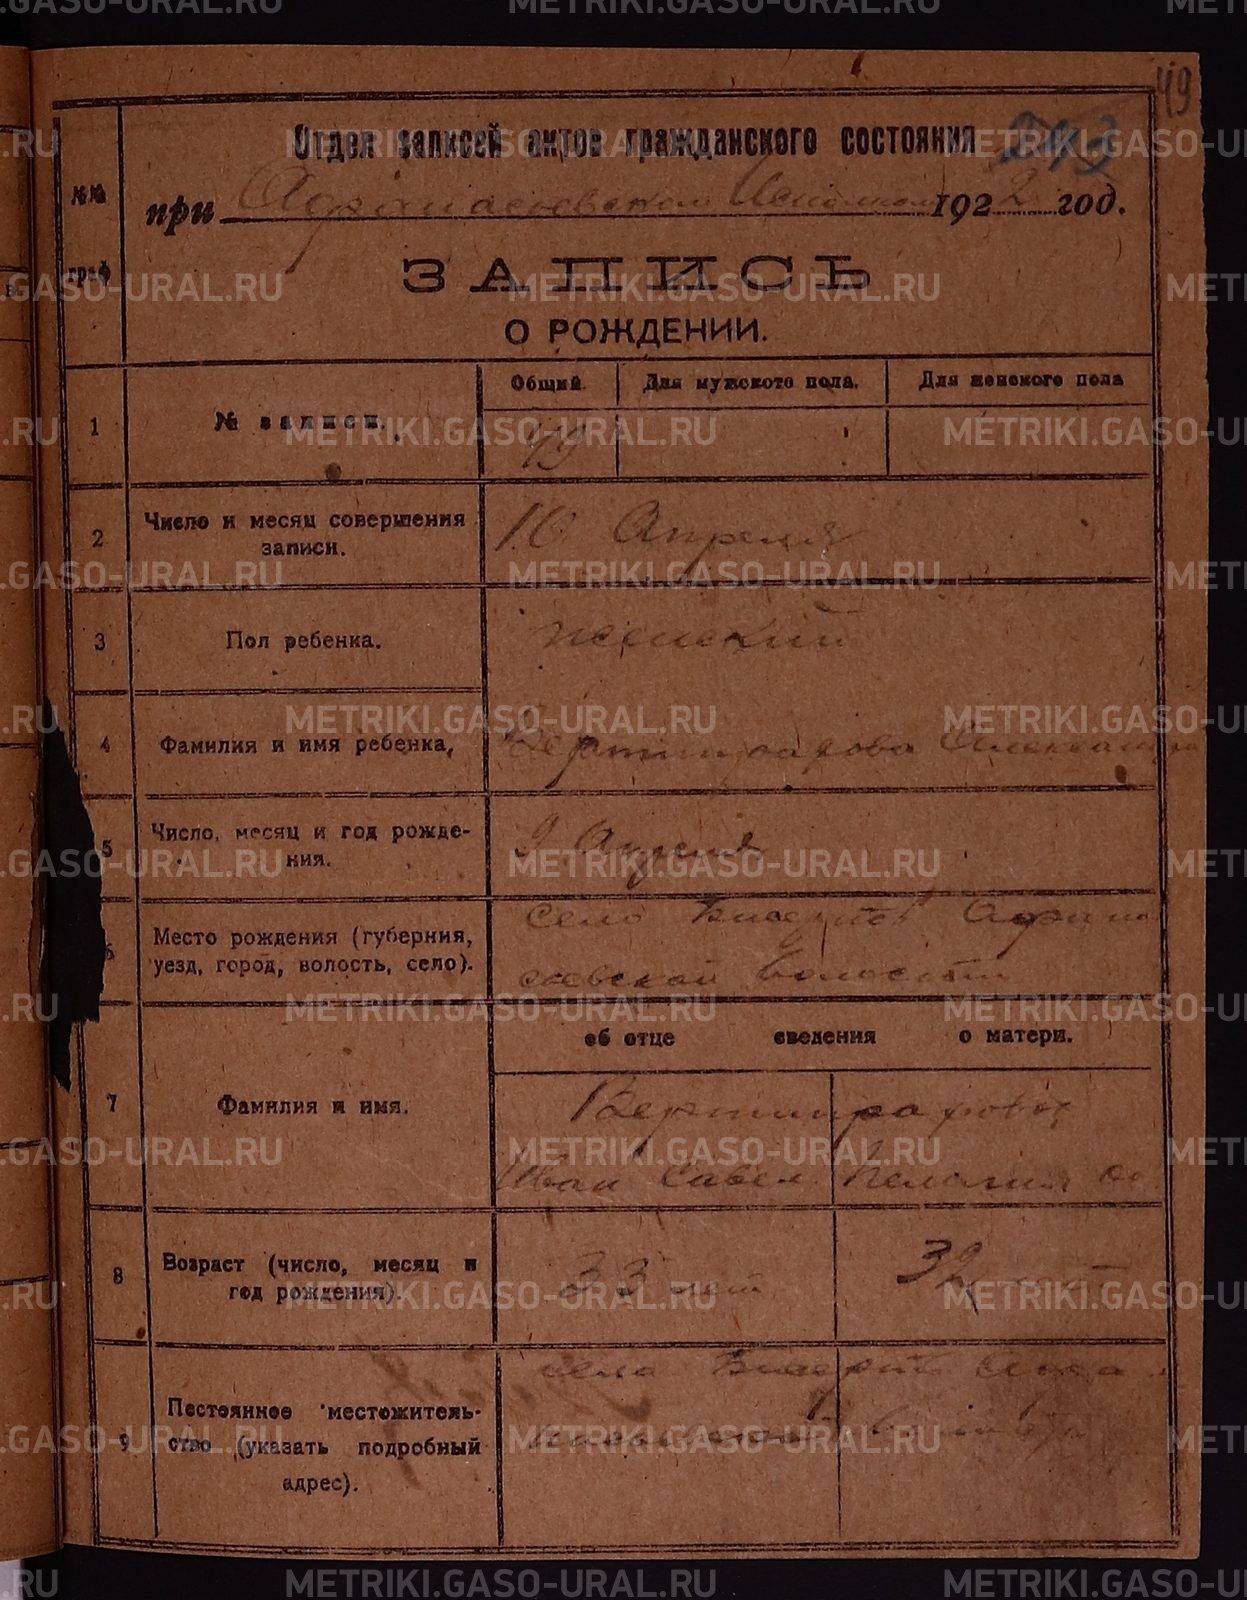 49
243
Отдел записей актов гражданского состояния
при Афанасьевском Исполкоме 1922 год.
№№ граф
ЗАПИСЬ
О РОЖДЕНИИ.
Общий. Для мужского пола. Для женского пола
1 № записи. 49
2 Число и месяц совершения записи. 16 Апреля
3 Пол ребенка. женский
4 Фамилия и имя ребенка,
5 Число, месяц и год рождения. 9 Апреля
6 Место рождения (губерния, уезд, город, волость, село). село Бисертс Афана
сьевской волости
об отце сведения о матери.
7 Фамилия и имя.
Иван Савел. Пелагия
8 Возраст (число, месяц и год рождения). 33 лет 32
9 Постоянное местожительство (указать подробный адрес). село
METRIKI.GASO-URAL.RU